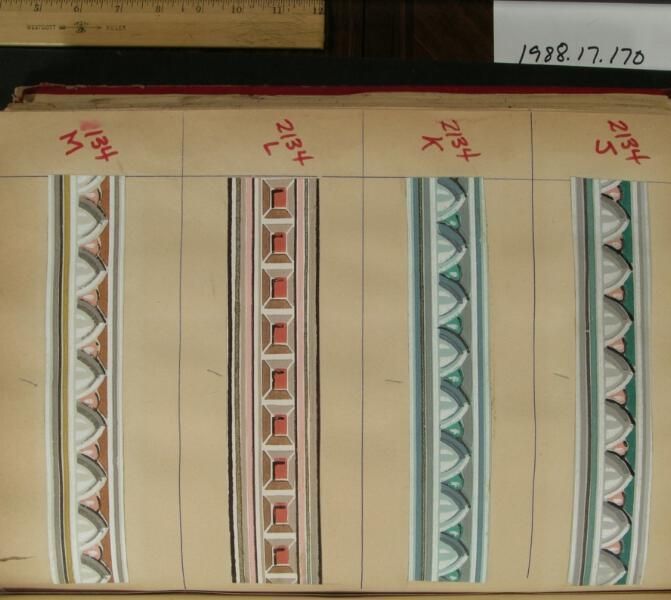 5 6 7 8 9 10 11 12
WESTCOTT RULER
1988.17.170
2134
M
2134
L
2134
K
2134
J